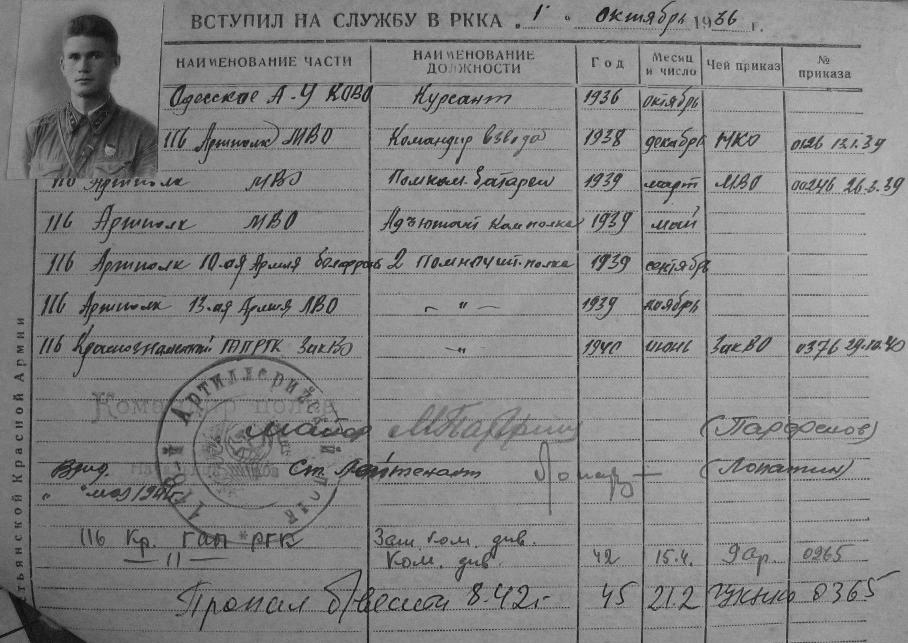 ВСТУПИЛ НА СЛУЖБУ В РККА „ 1 “ октябрь 1936 г.
НАИМЕНОВАНИЕ ЧАСТИ НАИМЕНОВАНИЕ ДОЛЖНОСТИ Год Месяц и число Чей приказ № приказа
Одесское А-У КОВО Курсант 1936 октябрь
116 Артполк МВО Командир взвода 1938 декабрь НКО 0126 13.1.39
116 Артполк МВО Помком. батареи 1939 март МВО 00246 26.3.39
116 Артполк МВО Адъютант Ком полка 1939 май
116 Артполк 10-ая Армия 2 Помначшт. полка 1939 сентябрь
116 Артполк 13-ая Армия ЛВО — " — 1939 ноябрь
116 Краснознаменный ГАПРГК ЗакВО —"— 1940 июнь ЗакВО 0376 29.10.40
Командир полка
майор (Парфенов)
Врид. Начальника Штаба Ст. Лейтенант (Лопатин)
" " мая 1941г.
116-й Артиллерийский Полк
116 Кр. ГАП РГК Зам. ком. див.
— 11 — Ком. див. 42 15.4. 9 ар. 0265
Пропал б/вести 8.42г. 45 21.2 ГУКНКО 0365
тьянской Красной Армии